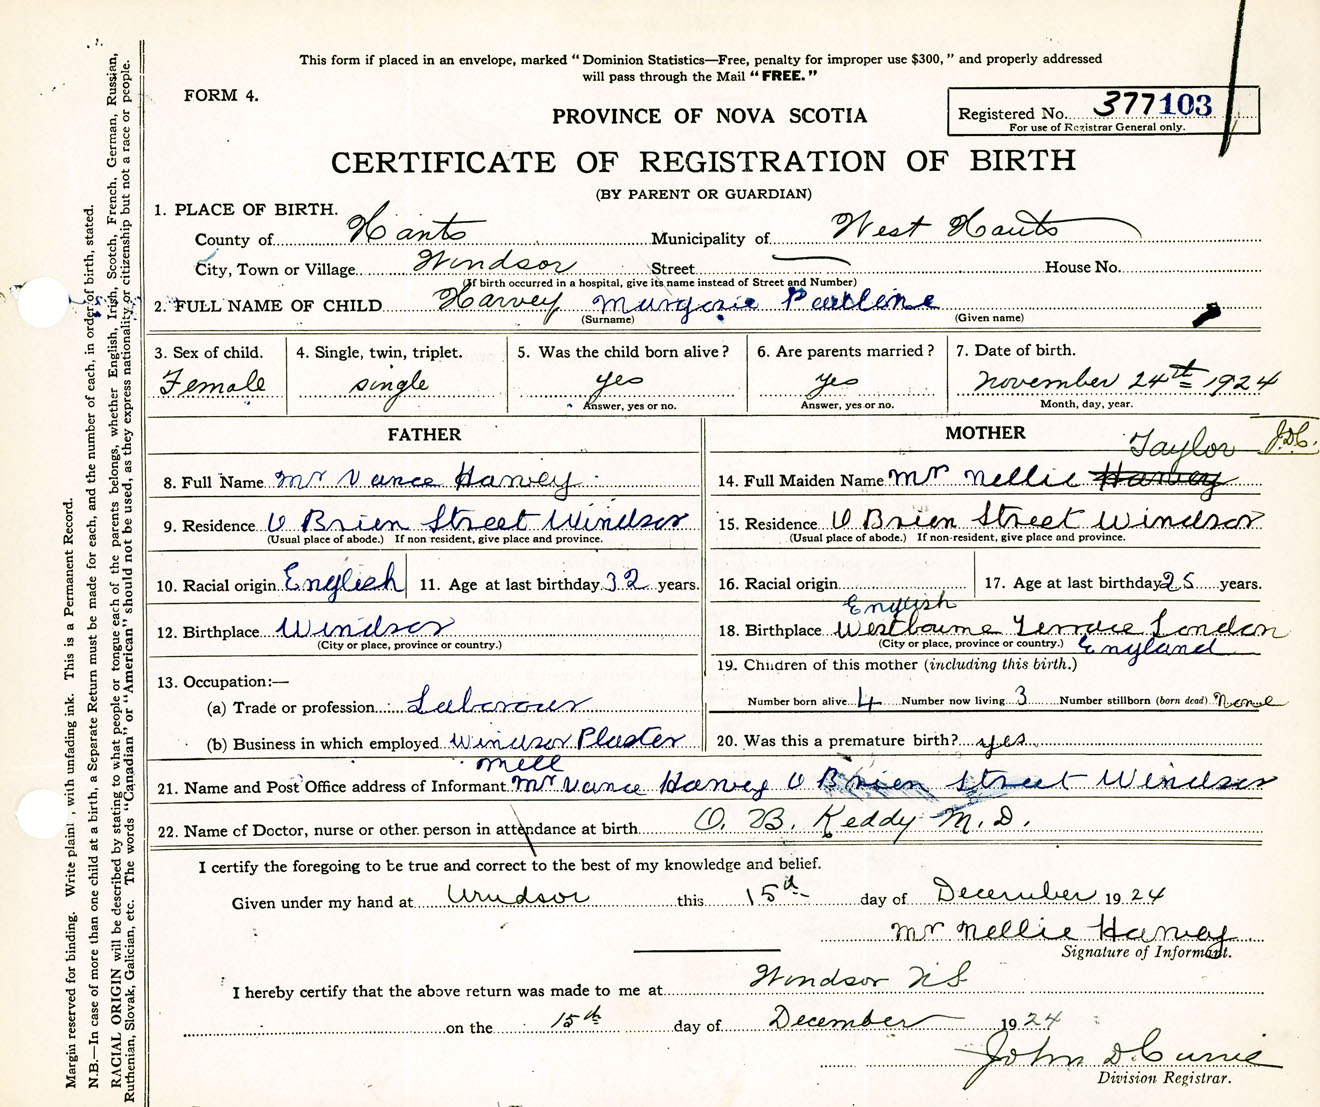 This form if placed in an envelope, marked "Dominion Statistics—Free, penalty for improper use $300," and properly addressed
will pass through the Mail "FREE."
FORM 4.
PROVINCE OF NOVA SCOTIA
Registered No. 377103
For use of Registrar General only.
CERTIFICATE OF REGISTRATION OF BIRTH
(BY PARENT OR GUARDIAN)
1. PLACE OF BIRTH.
County of Hants Municipality of West Hants
City, Town or Village Windsor Street House No.
(If birth occurred in a hospital, give its name instead of Street and Number)
2. FULL NAME OF CHILD Harvey Margorie Pauline
(Surname) (Given name)
3. Sex of child. 4. Single, twin, triplet. 5. Was the child born alive? 6. Are parents married? 7. Date of birth.
Female single yes yes November 24th 1924
Answer, yes or no. Answer, yes or no. Month, day, year.
FATHER
8. Full Name Mr Vance Harvey
9. Residence O Brien Street Windsor
(Usual place of abode.) If non resident, give place and province.
10. Racial origin English 11. Age at last birthday 32 years.
12. Birthplace Windsor
(City or place, province or country.)
13. Occupation:—
(a) Trade or profession Labourer
(b) Business in which employed Windsor Plaster
Mill
MOTHER
Taylor J.D.C.
14. Full Maiden Name Mr Nellie Harvey
15. Residence O Brien Street Windsor
(Usual place of abode.) If non-resident, give place and province.
16. Racial origin 17. Age at last birthday 25 years.
English
18. Birthplace Westbourne Terrace London
(City or place, province or country.) England
19. Children of this mother (including this birth.)
Number born alive 4 Number now living 3 Number stillborn (born dead) None
20. Was this a premature birth? yes
21. Name and Post Office address of Informant. Mr Vance Harvey O Brien Street Windsor
22. Name of Doctor, nurse or other person in attendance at birth O. B. Keddy M.D.
I certify the foregoing to be true and correct to the best of my knowledge and belief.
Given under my hand at Windsor this 15th day of December 1924
Mr Nellie Harvey
Signature of Informant.
I hereby certify that the above return was made to me at Windsor NS
on the 15th day of December 1924
John D. Currie
Division Registrar.
Margin reserved for binding. Write plainl, with unfading ink. This is a Permanent Record.
N.B.—In case of more than one child at a birth, a Separate Return must be made for each, and the number of each, in order of birth, stated.
RACIAL ORIGIN will be described by stating to what people or tongue each of the parents belongs, whether English, Irish, Scotch, French, German, Russian,
Ruthenian, Slovak, Galician, etc. The words "Canadian" or "American" should not be used, as they express nationality or citizenship but not a race or people.